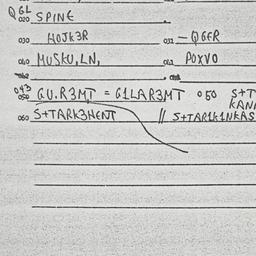 QGL
020 SPINE
030 HOJK3R 032 - QGER
040 MUSKU,LN, 042 POXVO
043
050 GU.R3MT = G1LAR3MT 050 S+T
KAN
060 S+TARK3HENT // S+TAR1K1NKAS